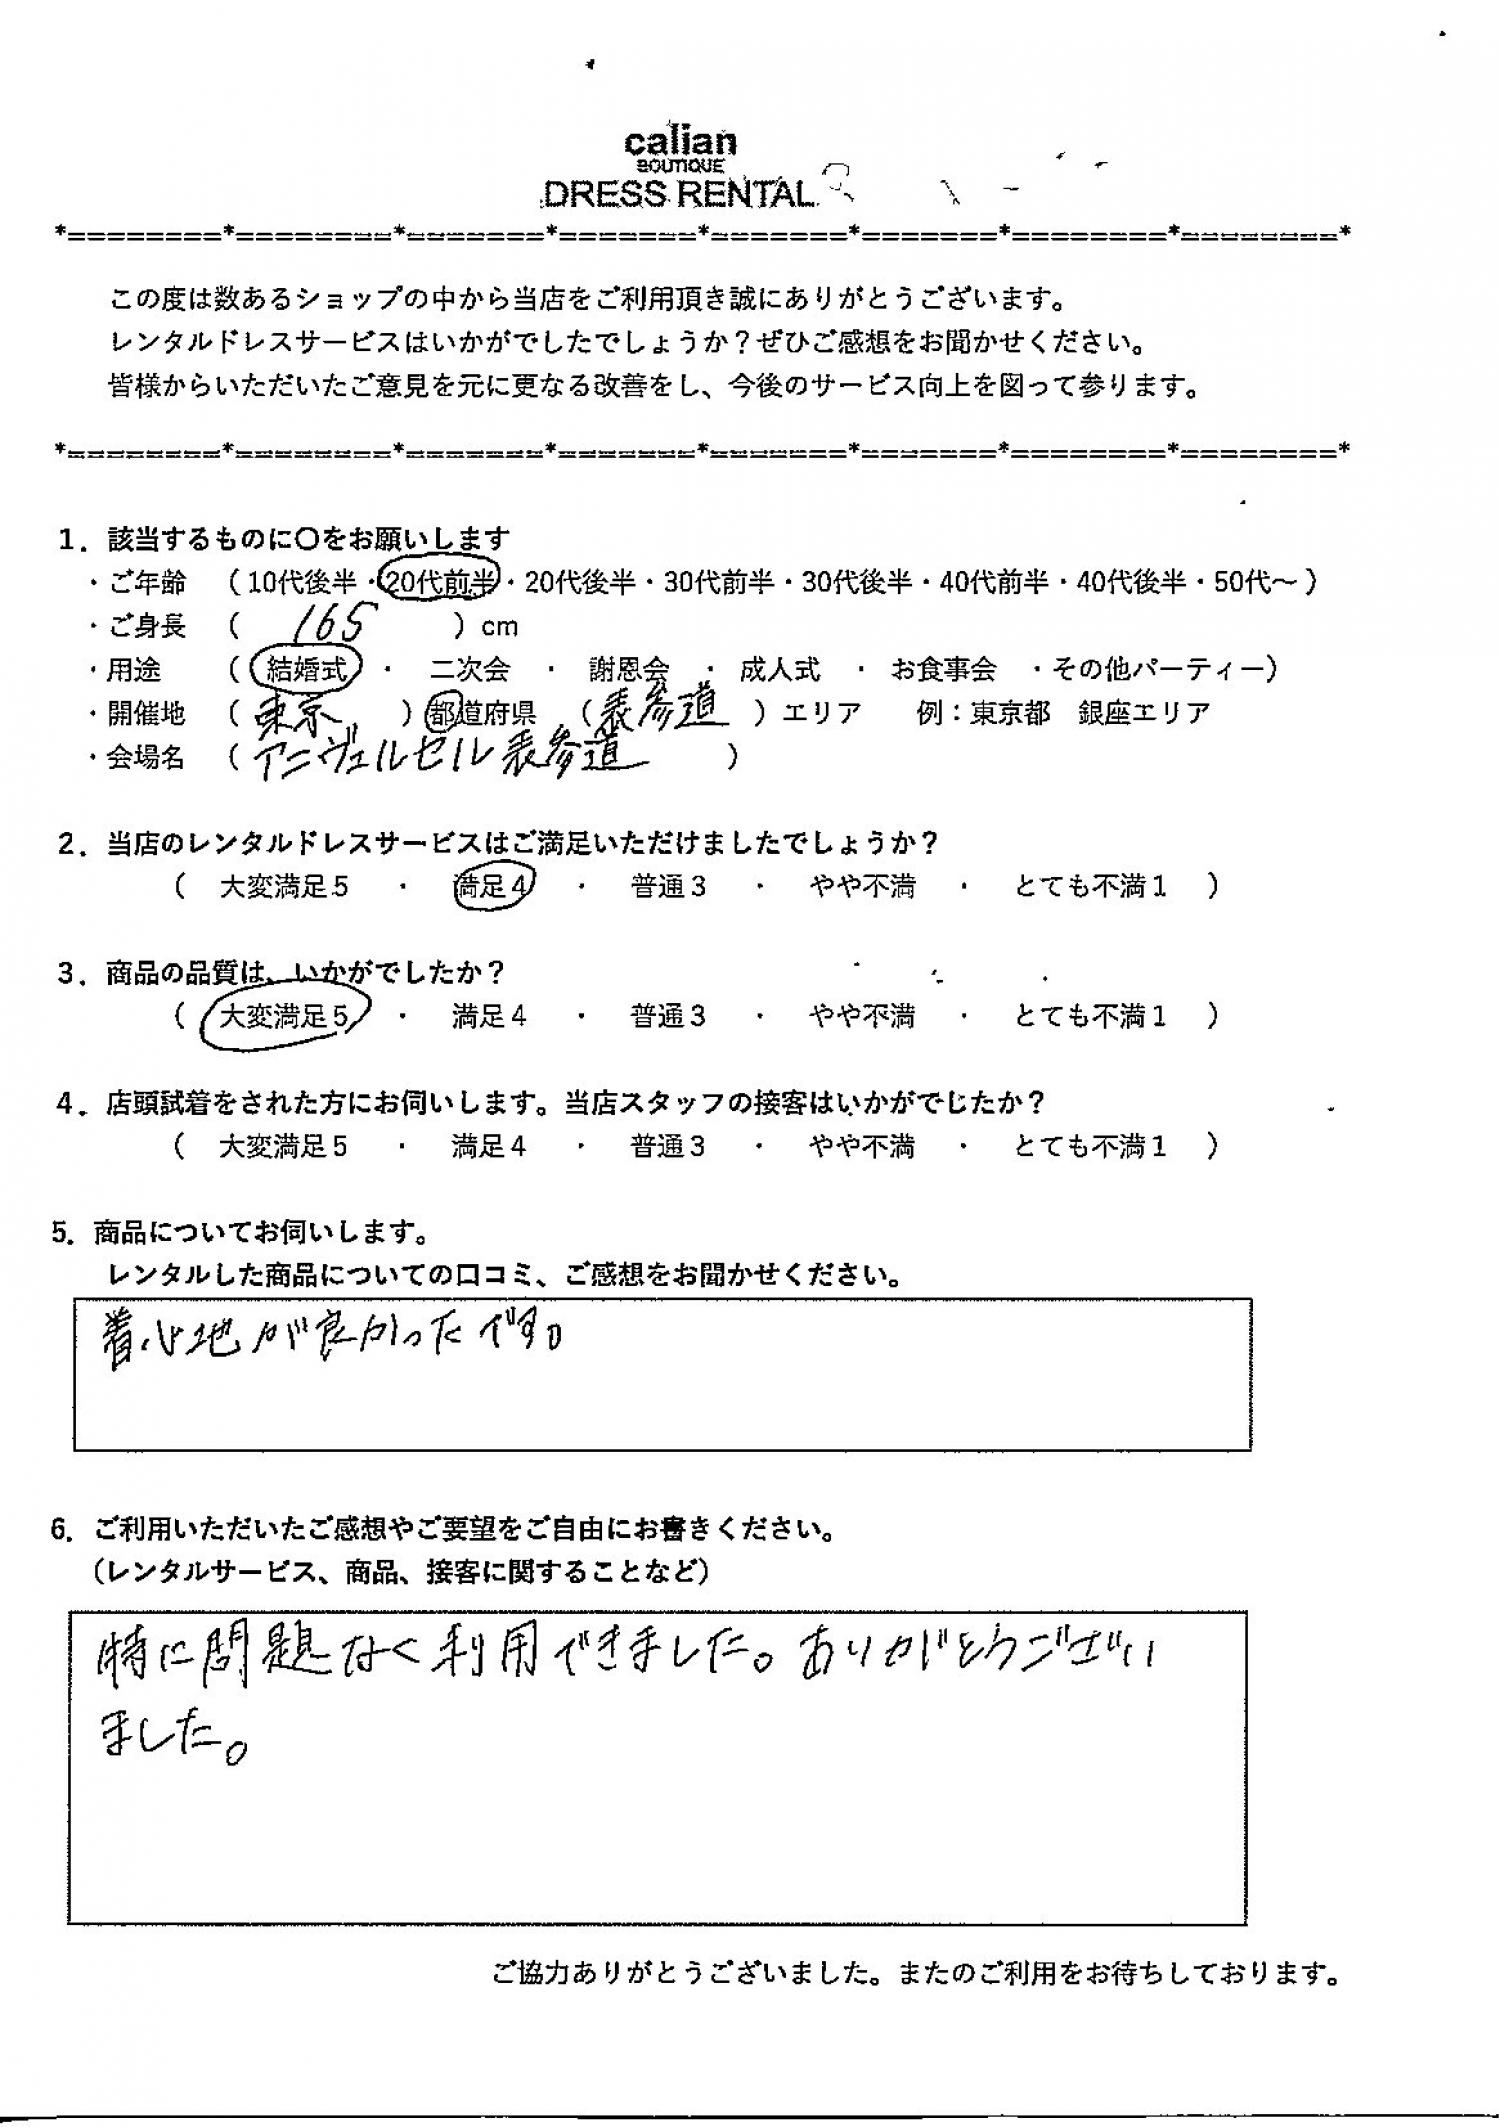 calian
BOUTIQUE
DRESS RENTAL
*========*========*=======*=======*=======*=======*========*========*
この度は数あるショップの中から当店をご利用頂き誠にありがとうございます。
レンタルドレスサービスはいかがでしたでしょうか？ぜひご感想をお聞かせください。
皆様からいただいたご意見を元に更なる改善をし、今後のサービス向上を図って参ります。
*========*========*=======*=======*=======*=======*========*========*
1．該当するものに〇をお願いします
・ご年齢　（10代後半・20代前半・20代後半・30代前半・30代後半・40代前半・40代後半・50代～）
・ご身長　（　165　）cm
・用途　（　結婚式　・　二次会　・　謝恩会　・　成人式　・　お食事会　・その他パーティー）
・開催地　（　東京　）都道府県　（表参道　）エリア　　例：東京都　銀座エリア
・会場名　（　アニヴェルセル表参道　）
2．当店のレンタルドレスサービスはご満足いただけましたでしょうか？
（　大変満足5　・　満足4　・　普通3　・　やや不満　・　とても不満1　）
3．商品の品質は、いかがでしたか？
（　大変満足5　・　満足4　・　普通3　・　やや不満　・　とても不満1　）
4．店頭試着をされた方にお伺いします。当店スタッフの接客はいかがでしたか？
（　大変満足5　・　満足4　・　普通3　・　やや不満　・　とても不満1　）
5．商品についてお伺いします。
レンタルした商品についての口コミ、ご感想をお聞かせください。
着心地が良かったです。
6．ご利用いただいたご感想やご要望をご自由にお書きください。
（レンタルサービス、商品、接客に関することなど）
特に問題なく利用できました。ありがとうございい
ました。
ご協力ありがとうございました。またのご利用をお待ちしております。